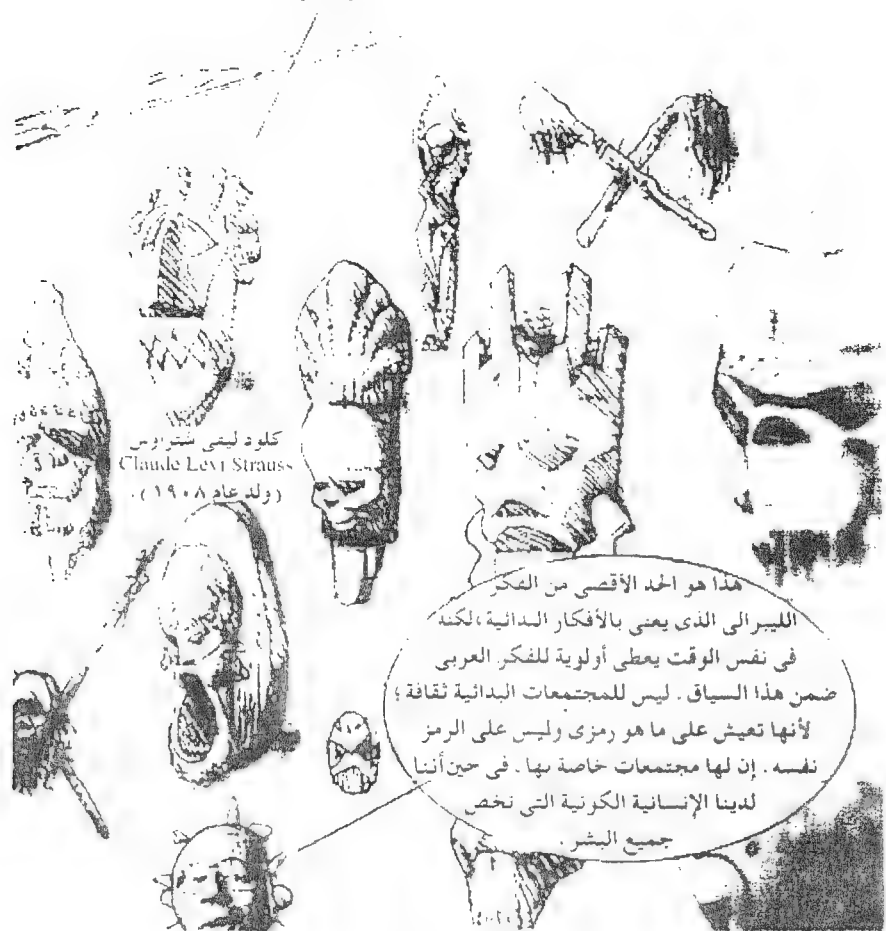 كلود ليفي شتراوس
Claude Levi Strauss
(ولد عام ١٩٠٨).
هذا هو الحد الأقصى من الفكر
الليبرالى الذى يعنى بالأفكار البدائية، لكنه
فى نفس الوقت يعطى أولوية للفكر العربى
ضمن هذا السياق. ليس للمجتمعات البدائية ثقافة؛
لأنها تعيش على ما هو رمزى وليس على الرمز
نفسه. إن لها مجتمعات خاصة بها. فى حين أننا
لدينا الإنسانية الكونية التى تخص
جميع البشر.